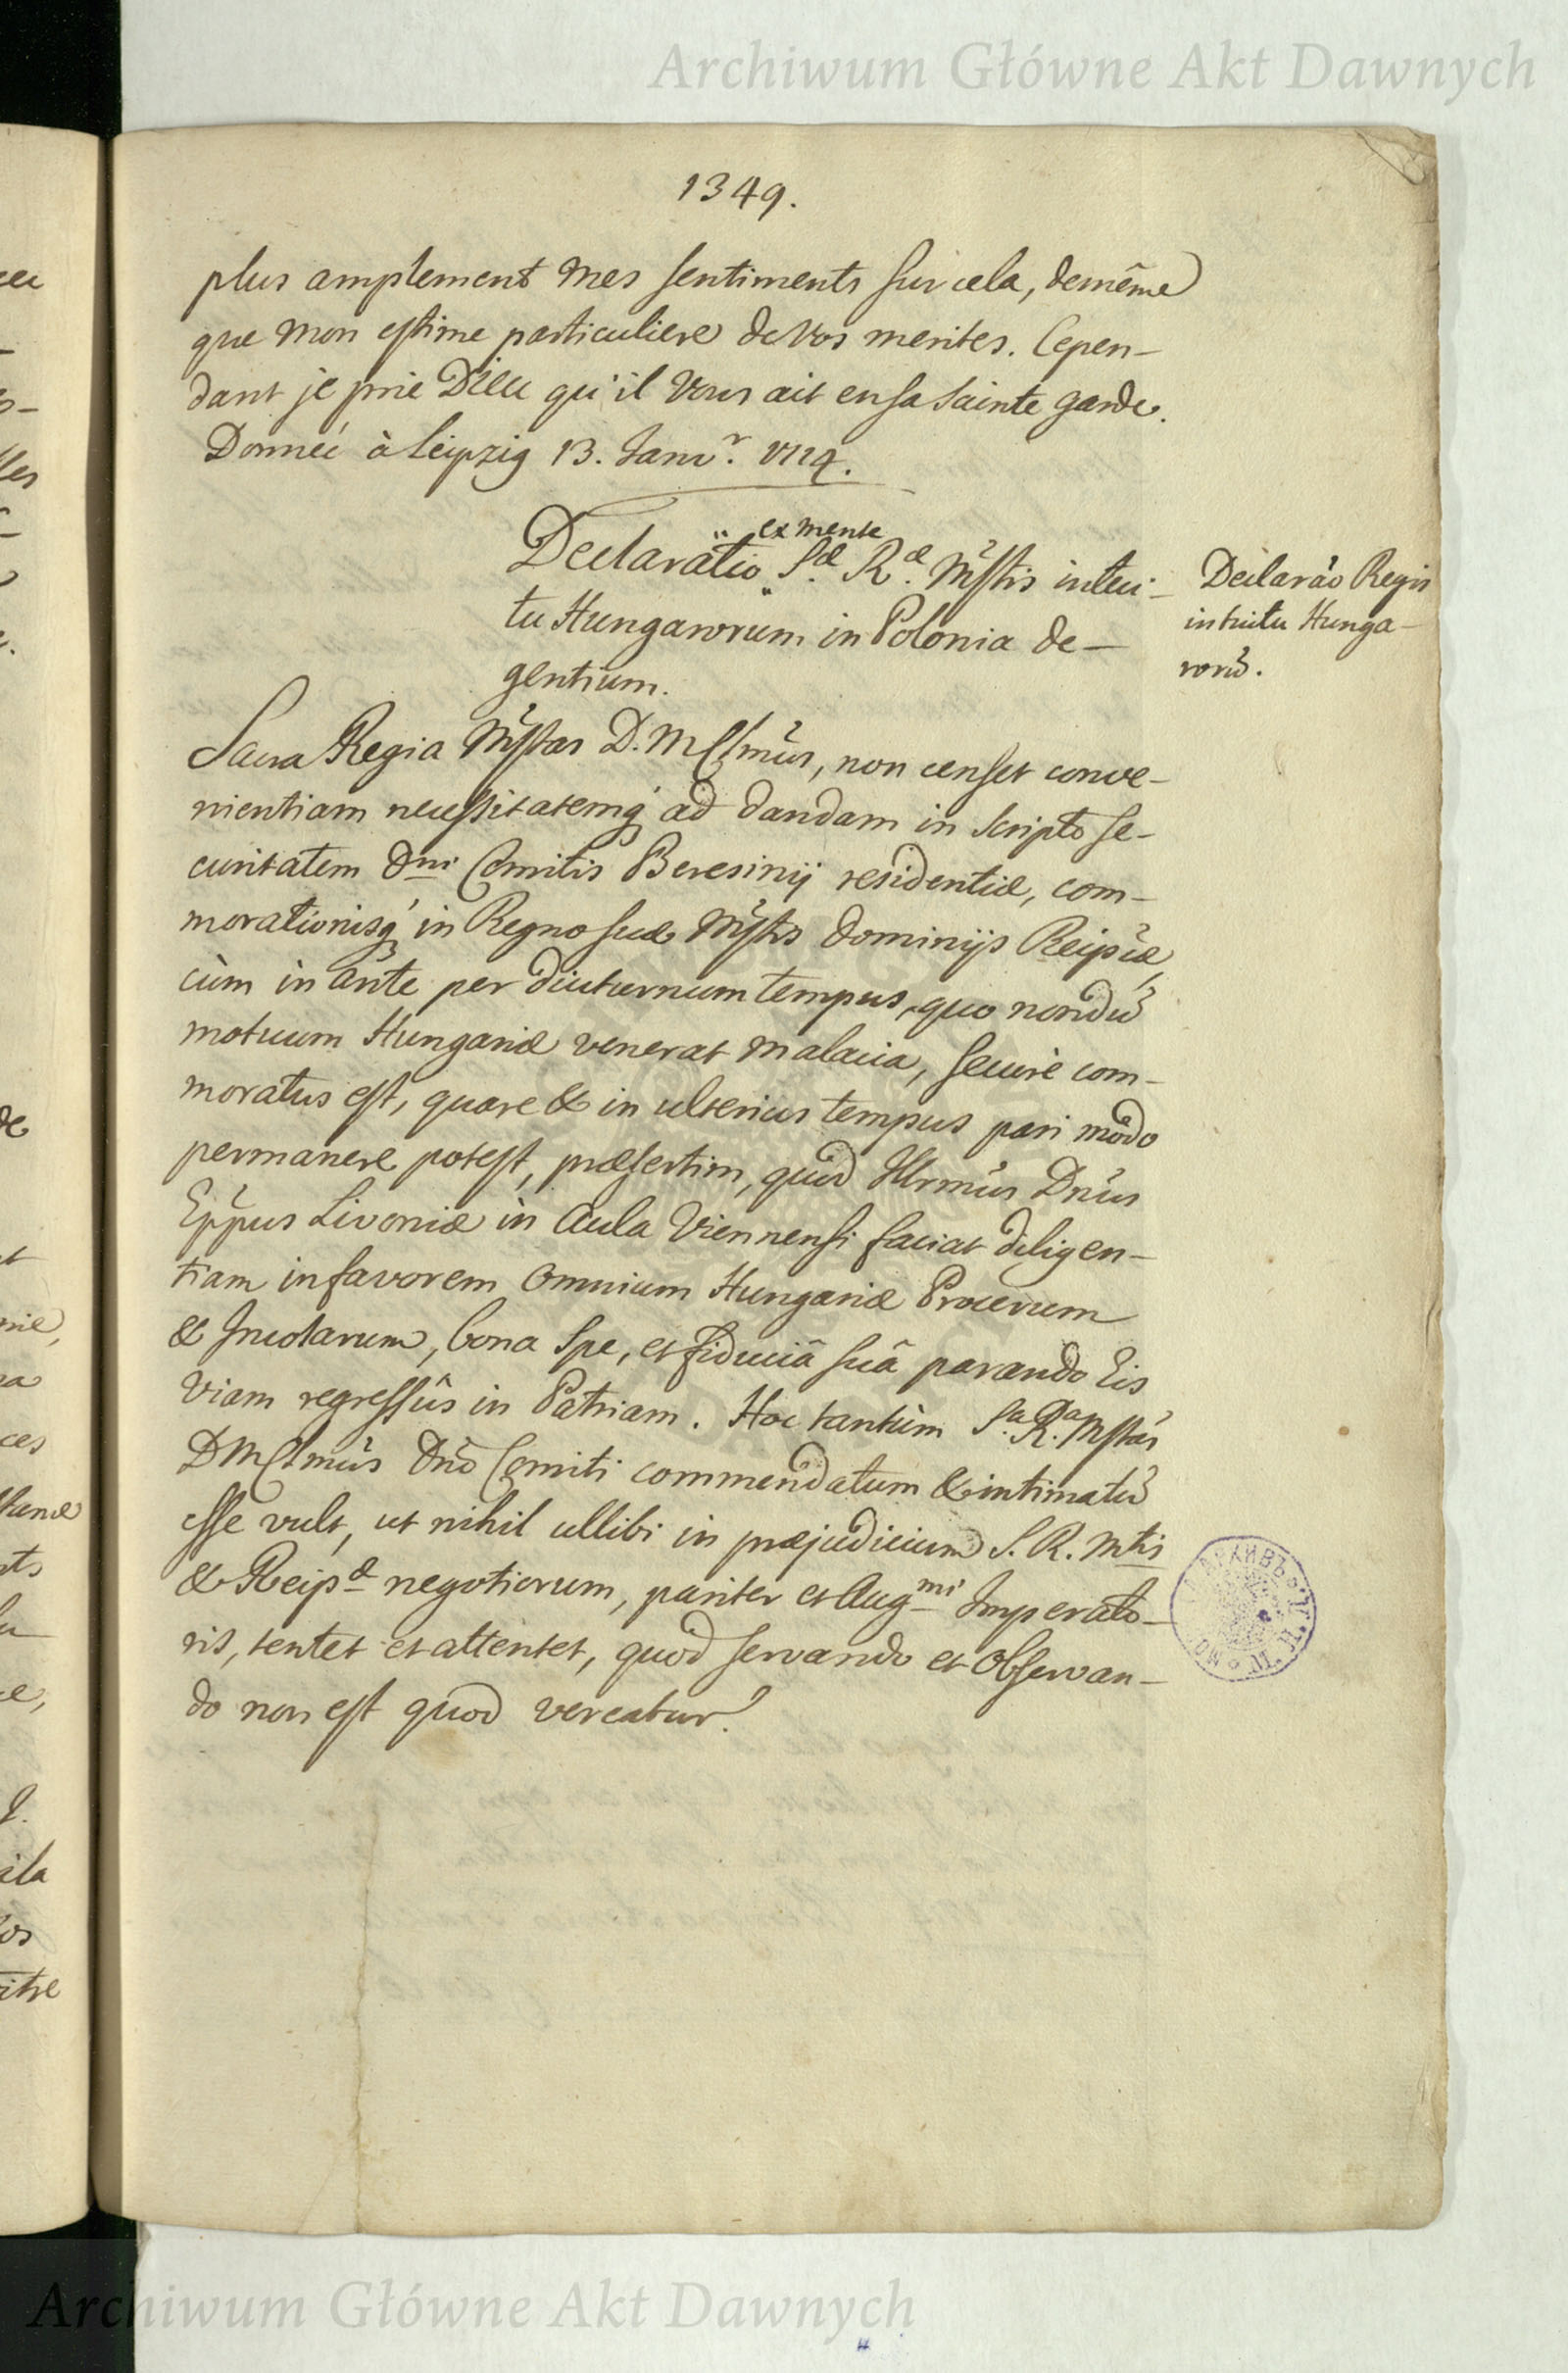 Archiwum Główne Akt Dawnych
1349.
plus amplement mes sentiments sur cela, demême
que mon estime particuliere de Vos merites. Cepen-
dant je prie Dieu qu'il Vous ait en sa Sainte garde.
Donnée à Leipzig 13. Janv.r 1714.
ex mente
Declaratio S.æ R.æ Mstis intui-
tu Hungarorum in Polonia de-
gentium.
Declarão Regis
intuitu Hunga-
rorũ.
Sacra Regia Mstas D. M Clmus, non censet conve-
nientiam necessitatemq ad dandam in Scripto se-
curitatem Dni Comitis Beresinij residentiæ, com-
morationisq in Regno suæ Mstis dominijs Reipcæ,
cùm in ante per diuturnum tempus, quo nondũ
motuum Hungariæ venerat malacia, secure com-
moratus est, quare & in ulterius tempus pari modo
permanere potest, præsertim, quod Illrmus Dnus
Eppus Livoniæ in Aula Viennensi faciat diligen-
tiam in favorem Omnium Hungariæ Procerum
& Incolarum, bona Spe, et fiduciâ suâ parando Eis
Viam regressûs in Patriam. Hoc tantùm S.a R.a Mstas
D M Clmus Dno Comiti commendatum & intimatũ
esse vult, ut nihil ullibi in præjudicium S. R. Mtis
& Reipæ negotiorum, pariter et Augmi Imperato-
ris, tentet et attentet, quod servando et observan-
do non est quod vereatur.
Archiwum Główne Akt Dawnych